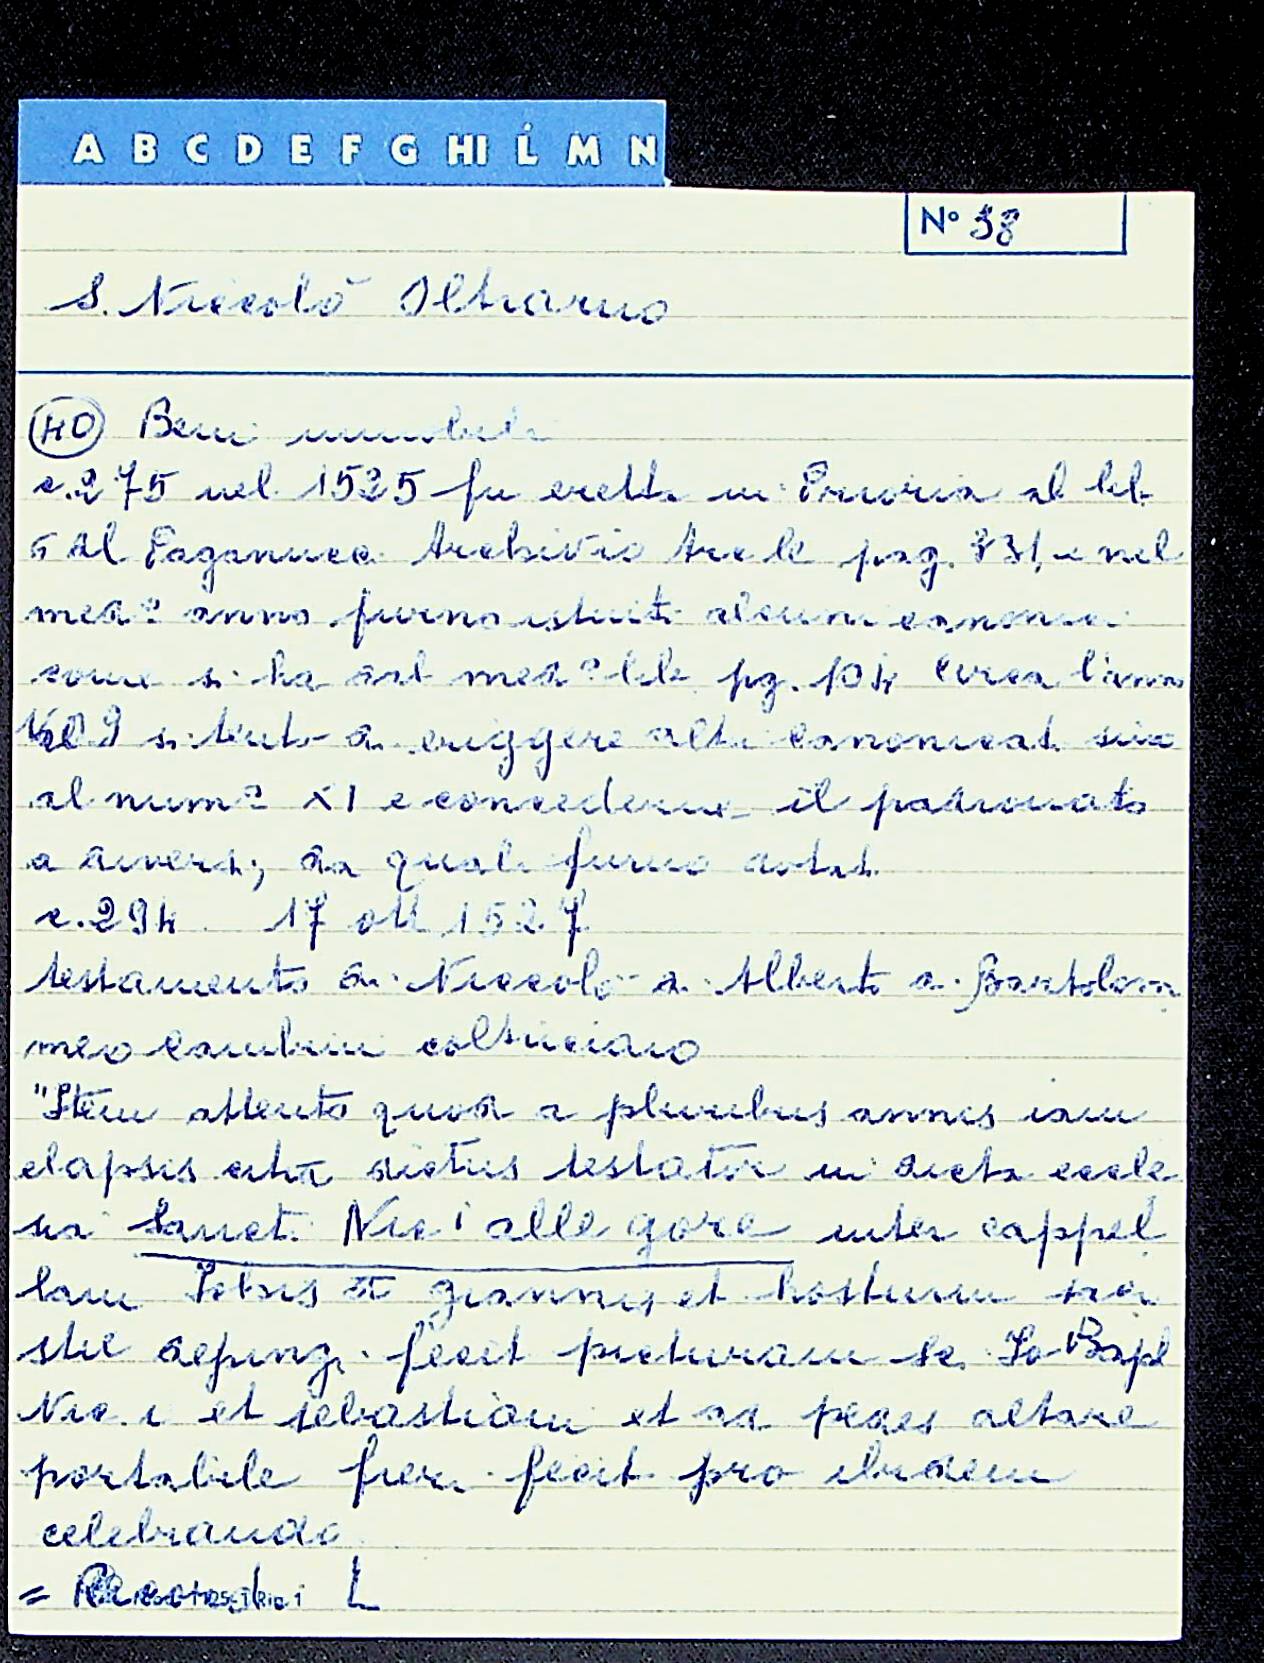 A B C D E F G HI L M N
Nº 38
S. Niccolò Oltrarno
40 Beni immobili
c. 275 nel 1525 fu eretta in Prioria al lib.
al Paganucci Archivio Arcle pag. 831, e nel
med:º anno furno istituiti alcuni canonici
come si ha dal medº lib pg. 104 Circa l'anno
si tentò di eriggere altri canonicati sino
al num:º XI e concederne il padronato
a diversi, da quali furno dotati
c. 294 17 ott 1527
testamento di Niccolò di Alberto di Bartolom
meo Cambini coltriciaro
"Item attento quod a pluribus annis iam
elapsis citra dictus testator in dicta eccle
sia Sancti Nic i alle gore inter cappel
lam et hostium
deping. fecit picturam Sc. Io Bapt
Nic. i et sebastiani et ad pedes altare
portabile fieri fecit pro ibidem
celebrando
= L